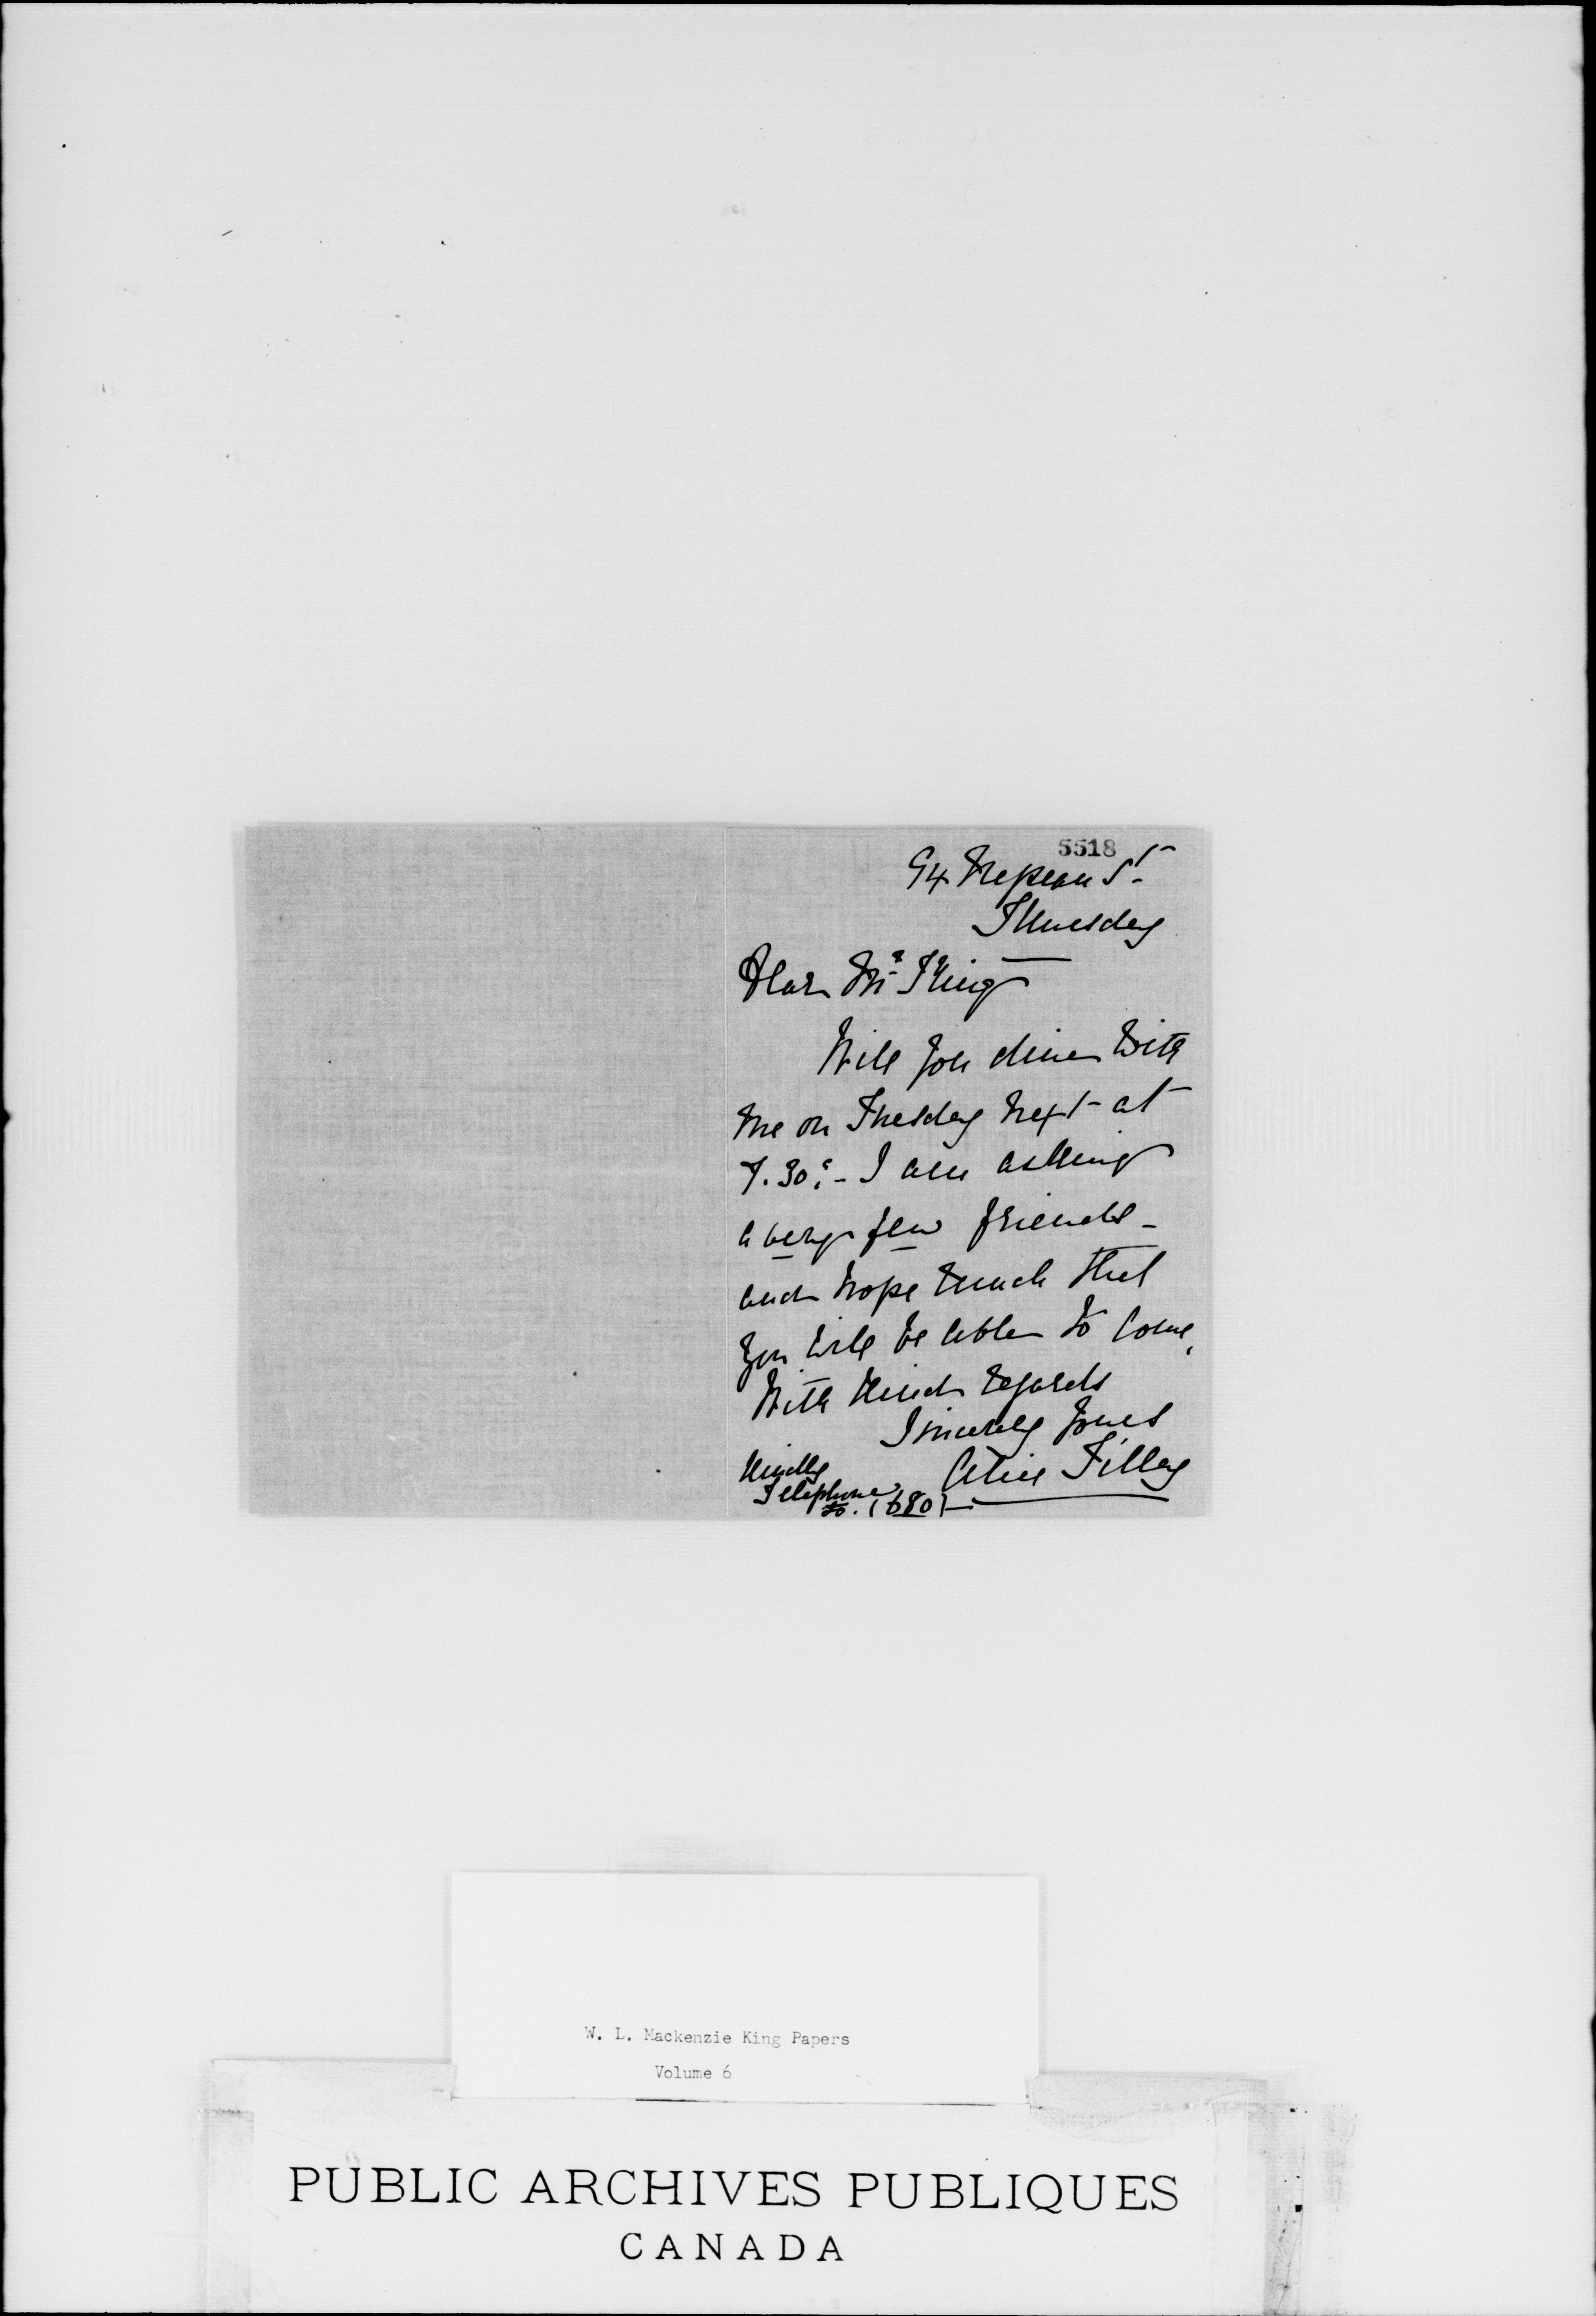 5518
94 Nepean St
Thursday
Dear Mr King
Will you dine with
me on Tuesday next at
7.30? - I am asking
a very few friends -
and hope much that
you will be able to come,
With kind regards
Sincerely yours
Alice Tilley
Kindly
Telephone
to. (680)
W. L. Mackenzie King Papers
Volume 6
PUBLIC ARCHIVES PUBLIQUES
CANADA